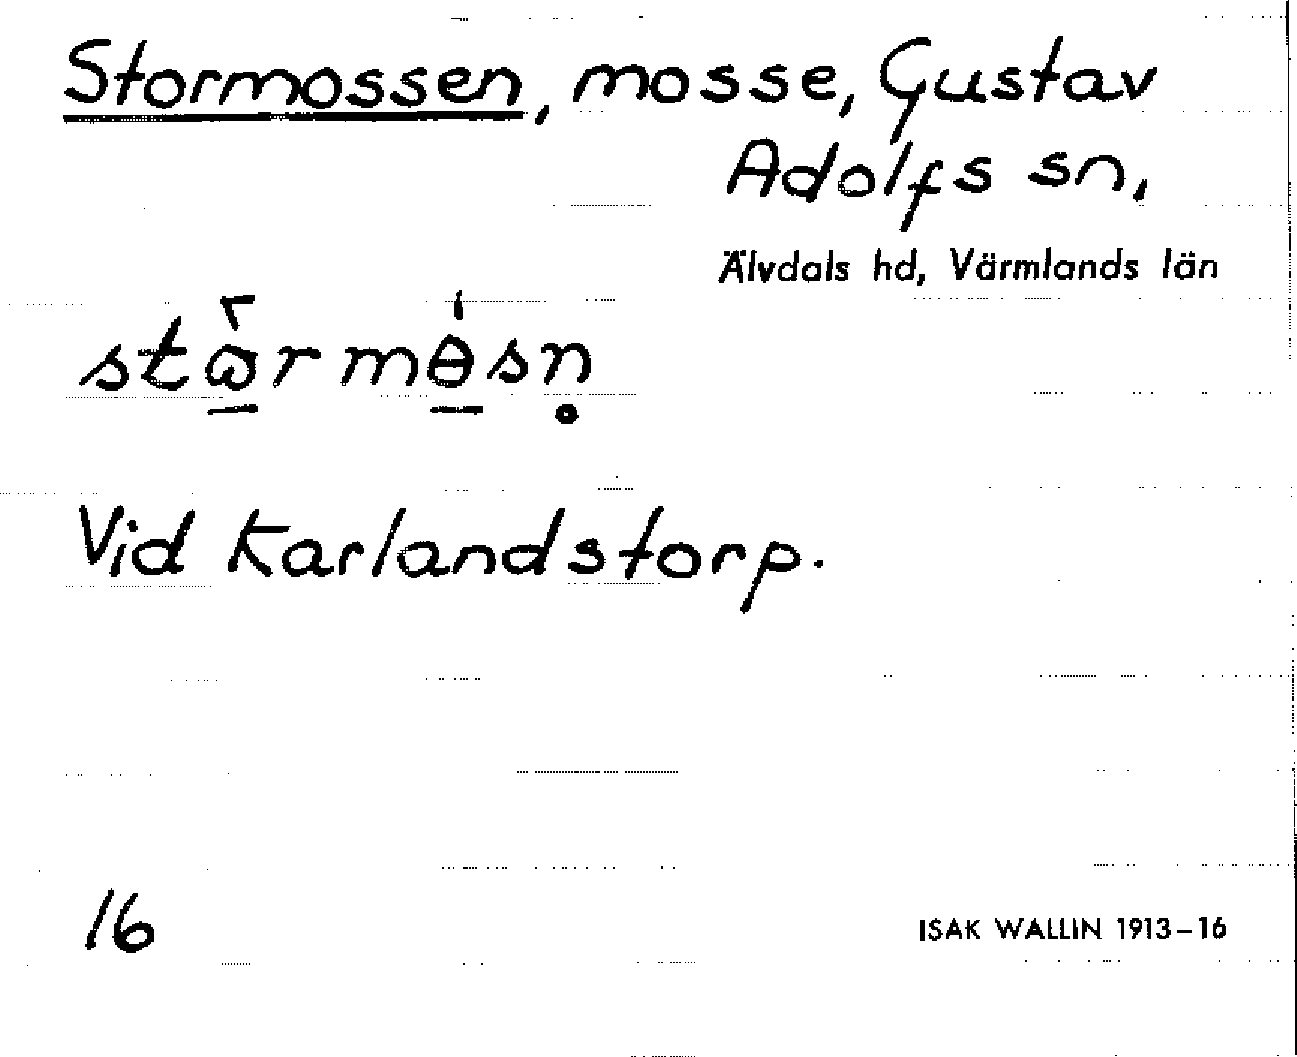 Stormossen, mosse, Gustav
Adolfs sn,
Älvdals hd, Värmlands län
Vid Karlandstorp.
16
ISAK WALLIN 1913–16